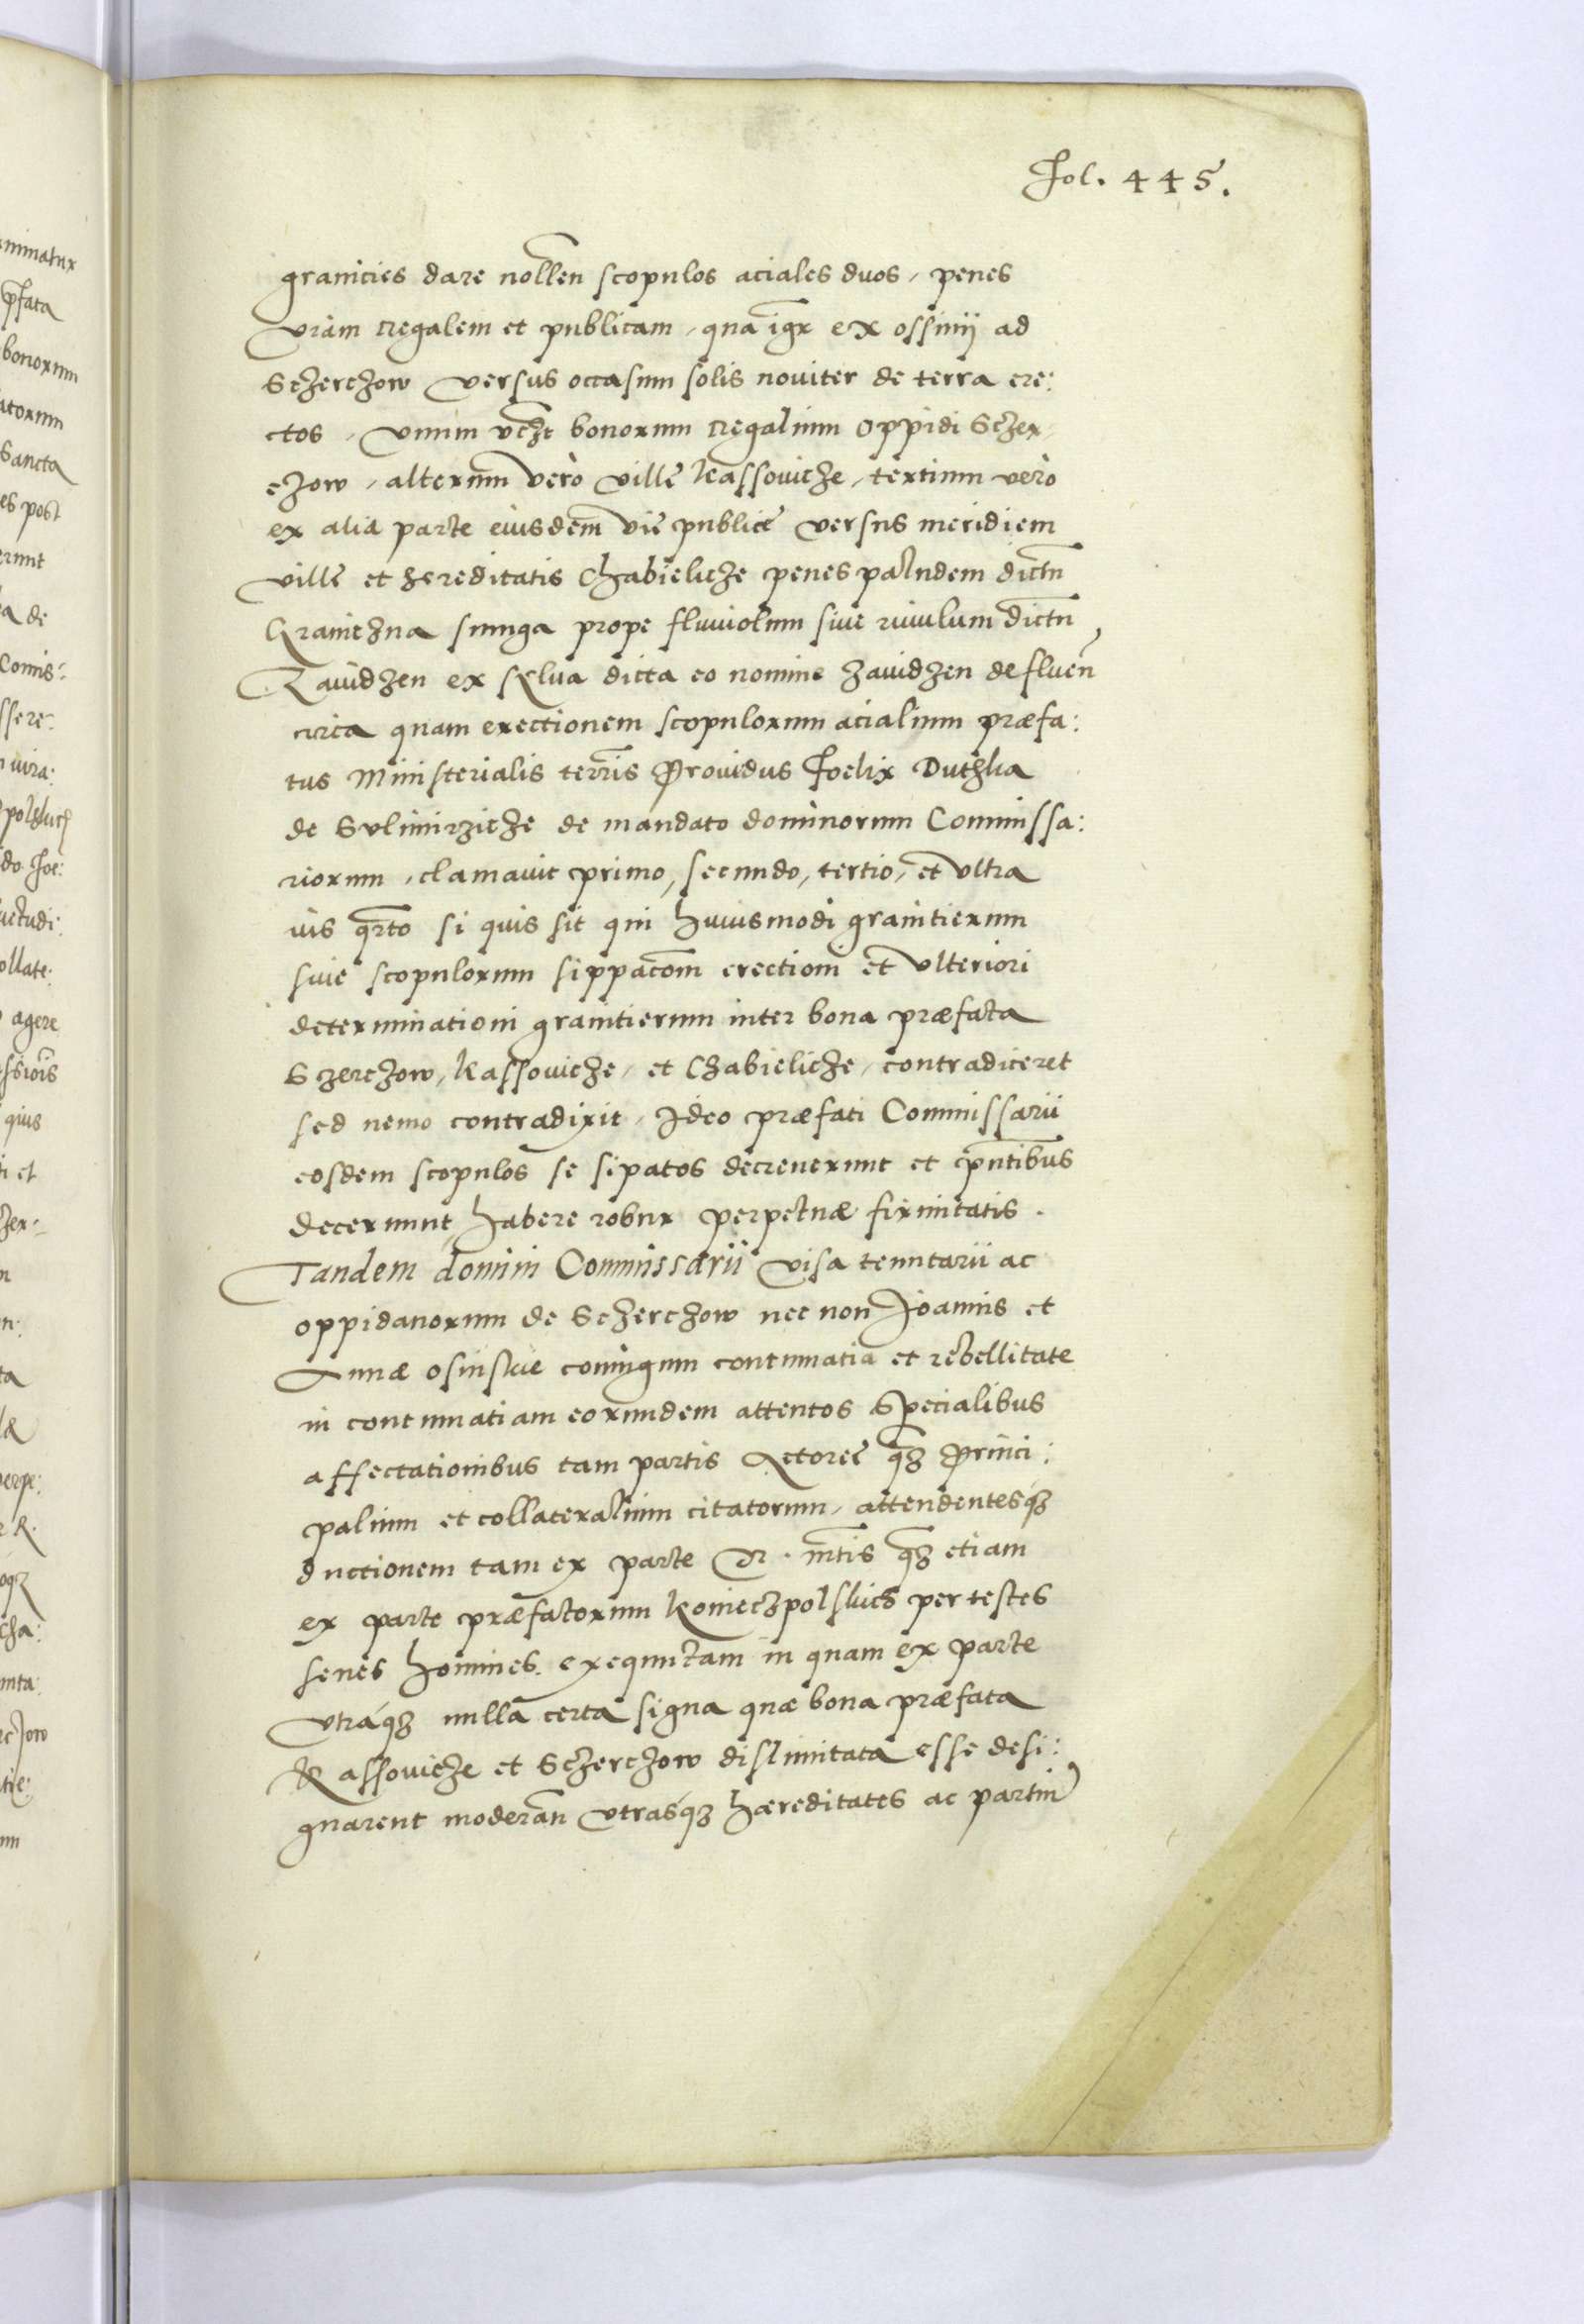 Fol. 445.
granicies dare nollen scopulos aciales duos, penes
viam regalem et publicam, qua igr ex ossinij ad
Sczerczow versus occasum solis noviter de terra ere:
ctos, vnum vczt bonorum regalium oppidi Sczer
czow, alterum vero ville Kassovicze, tertium vero
ex alia parte eiusdem vie publice versus meridiem
ville et hereditatis Chabielicze penes paludem dictn
Graniczna smuga prope fluviolum sive rivulum dictn
Zavidzen ex sylva dicta eo nomine Zavidzen defluen
circa quam erectionem scopulorum acialium præfa:
tus Ministerialis terris Providus Foelix Duthka
de Sulimirzicze de mandato dominorum Commissa:
riorum, clamavit primo, secundo, tertio, et vltra
ius qrto si quis sit qui huiusmodi granitierum
sive scopulorum sippacom erectioni et vlteriori
determinationi granitierum inter bona præfata
Sczerczow, Kassovicze, et Chabielicze, contradiceret
sed nemo contradixit, Ideo præfati Commissarii
eosdem scopulos se sipatos decreverunt et pntibus
decernunt habere robur perpetuæ firmitatis.
Tandem domini Commissarii visa tenutarii ac
oppidanorum de Sczerczow nec non Joannis et
Annæ osinskie coniugum contumatia et rebellitate
in contumatiam eorundem attentos specialibus
affectationibus tam partis Actoree qz princi:
palium et collateralium citatorum, attendentesqz
ductionem tam ex parte R. mtis qz etiam
ex parte præfatorum Konieczpolskies per testes
senes homines. exequutam in quam ex parte
vtraqz nulla certa signa quæ bona præfata
Kassovicze et Sczerczow dislimitata esse desi:
gnarent moderan vtrasqz hæreditates ac partin